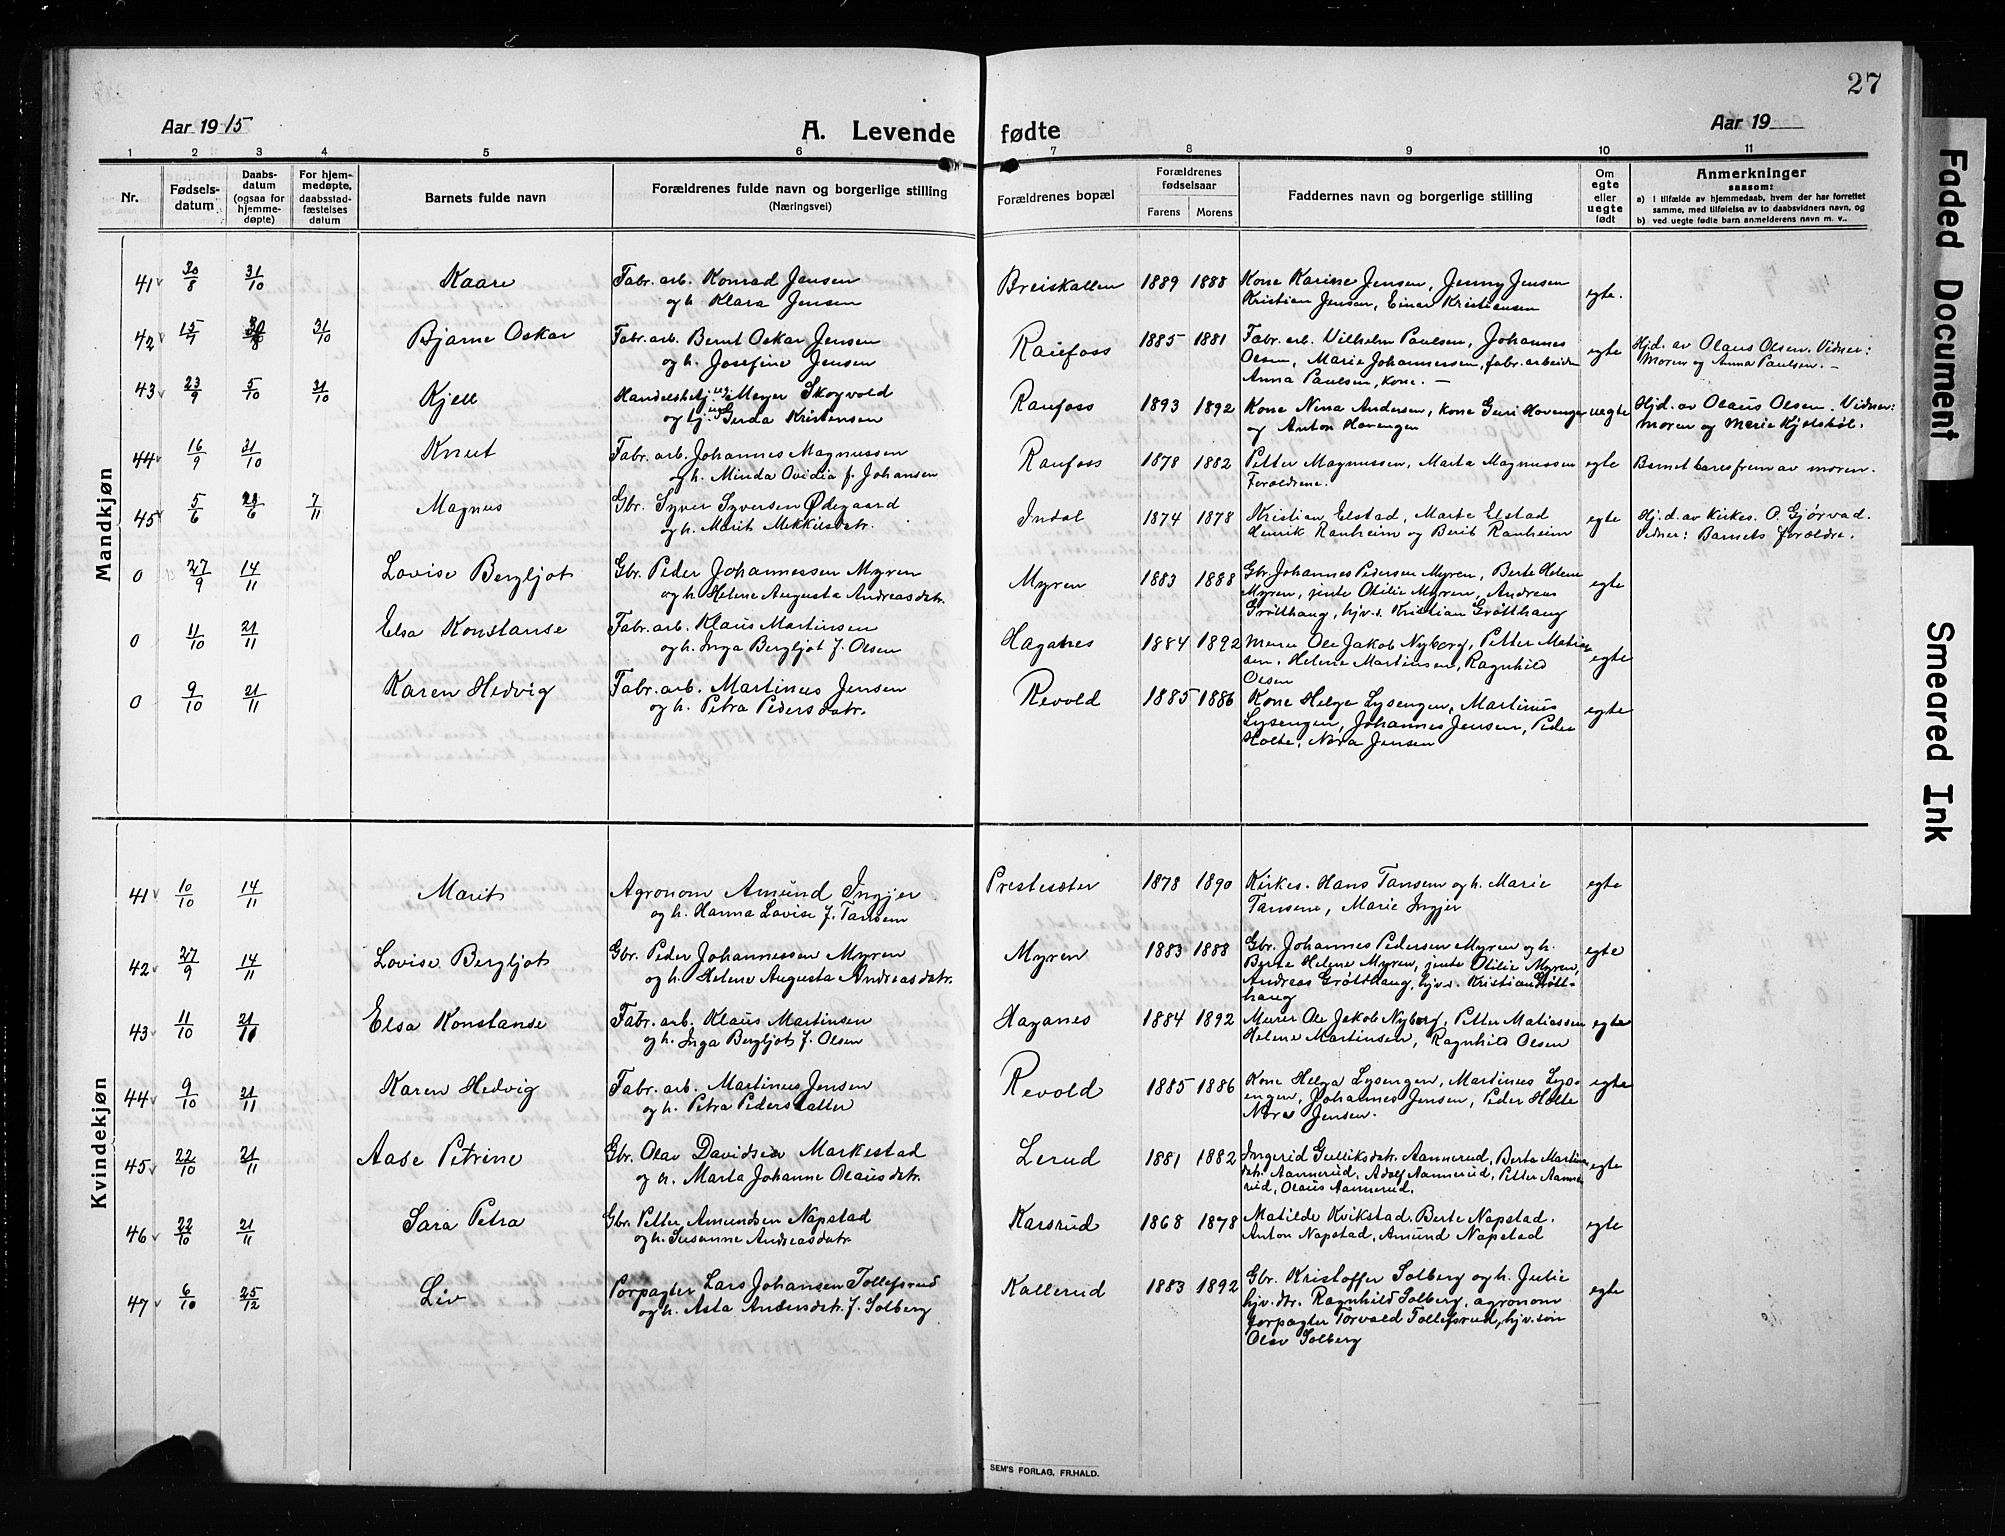 27
Aar 1915
A. Levende fødte
Aar 19
1 2 3 4 5 6 7 8 9 10 11
Nr.
Fødsels-
datum
Daabs-
datum
(ogsaa for
hjemme-
døpte)
For hjem-
medøpte,
daabsstad-
fæstelses
datum
Barnets fulde navn
Forældrenes fulde navn og borgerlige stilling
(Næringsvei)
Forældrenes bopæl
Forældrenes
fødselsaar
Farens Morens
Faddernes navn og borgerlige stilling
Om
egte
eller
uegte
født
Anmerkninger
saasom:
a) i tilfælde av hjemmedaab, hvem der har forrettet
samme, med tilføielse av to daabsvidners navn, og
b) ved uegte fødte barn anmelderens navn m. v..
Mandkjøn
41 30/8 31/10 Kaare Fabr. arb. Konrad Jensen Breiskallen 1889 1888 Kone Karine Jensen, Jenny Jensen egte.
og h. Klara Jensen Kristian Jensen, Einar Kristiansen
42 15/7 31/10 Bjarne Oskar Fabr. arb. Bernt Oskar Jensen Raufoss 1885 1881 Fabr. arb. Vilhelm Paulsen, Johannes egte Hj.d. av Olaus Olsen. Vidner:
og h. Josefine Jensen Olsen, Marie Johannessen, fabr. arbeider Moren og Anna Paulsen. —
Anna Paulsen, kone. —
43 23/9 5/10 31/10 Kjell Handelsbetj. ug. Meyer Skogvold Raufoss 1893 1892 Kone Nena Andersen, kone Guri Hovengen uegte Hjd. av Olaus Olsen. Vidner:
og tj. ug. Gerda Kristensen og Anton Hovengen moren og Marie Kjølsbøl.
44 16/9 31/10 Knut Fabr. arb. Johannes Magnussen Raufoss 1878 1882 Petter Magnussen, Marta Magnussen egte Barnet baaresfrem av moren.
og h. Minda Ovidia f. Johansen Forældrene.
45 5/6 29/6 7/11 Magnus Gbr. Syver Syversen Ødegaard Indal 1874 1878 Kristian Elstad, Marte Elstad egte Hj.d. av Kirkes. O. Gjørvad.
og h. Marit Mikkelsdatr. Henrik Ranheim og Berit Ranheim Vidner: Barnets forældre.
0 27/9 14/11 Lovise Bergljot Gbr. Peder Johannessen Myren Myren 1883 1888 Gbr Johannes Pedersen Myren, Berte Helene egte
og h. Helene Augusta Andreasdatr. Myren, jente Otilie Myren, Andreas
Grøtthaug, hjv.s. Kristian Grøtthaug
0 11/10 21/11 Elsa Konstanse Fabr. arb. Klaus Martinsen Haganes 1884 1892 Murer Ole Jakob Nyborg, Petter Matias- egte
og h. Inga Bergljot f. Olsen sen, Helene Martinsen, Ragnhild
Olsen
0 9/10 21/11 Karen Hedvig Fabr. arb. Martinus Jensen Revold 1885 1886 Kone Helga Lysengen, Martinus egte
og h. Petra Pedersdatr. Lysengen, Johannes Jensen, Peder
Holte, Nora Jensen
Kvindekjøn
41 10/10 14/11 Marit Agronom Amund Ingjer Prestesæter 1878 1890 Kirkes. Hans Tansem og h. Marie egte
og h. Hanna Lovise f. Tansem Tansene, Marie Ingjer
42 27/9 14/11 Lovise Bergljot Gbr. Peder Johannessen Myren Myren 1883 1888 Gbr. Johannes Pedersen Myren og h. egte
og h. Helene Augusta Andreasdatr. Berte Helene Myren, jente Otilie Myren,
Andreas Grøtthaug, hjv.s. Kristian Grøtt-
haug
43 11/10 21/11 Elsa Konstanse Fabr. arb. Klaus Martinsen Haganes 1884 1892 Murer Ole Jakob Nyborg, Petter Matiassen egte
og h. Inga Bergljot f. Olsen Helene Martinsen, Ragnhild Olsen
44 9/10 21/11 Karen Hedvig Fabr. arb. Martinus Jensen Revold 1885 1886 Kone Helga Lysengen, Martinus Lys- egte
og h. Petra Pedersdatter engen, Johannes Jensen, Peder Holte
Nora Jensen.
45 22/10 21/11 Aase Petrine Gbr. Olav Davidsen Markestad Lerud 1881 1882 Ingerid Gulliksdatr. Aannerud, Berte Martins- egte
og h. Marta Johanne Olausdatr. datr. Aannerud, Adolf Aannerud, Petter Aanne-
rud, Olaus Aannerud.
46 22/10 21/11 Sara Petra Gbr. Petter Amundsen Napstad Karsrud 1868 1878 Matilde Kvikstad. Berte Napstad. egte
og h. Susanne Andreasdatr. Anton Napstad, Amund Napstad
47 6/10 25/12 Liv Forpagter Lars Johansen Tollefsrud Kallerud 1883 1892 Gbr. Kristoffer Solberg og h. Julie egte
og h. Asta Andersdatr. f. Solberg hjv. dtr. Ragnhild Solberg, agronom
forpagter Torvald Tollefsrud, hjv. søn
Olav Solberg
SEM'S FORLAG, FR.HALD.
Faded Document
Smeared Ink